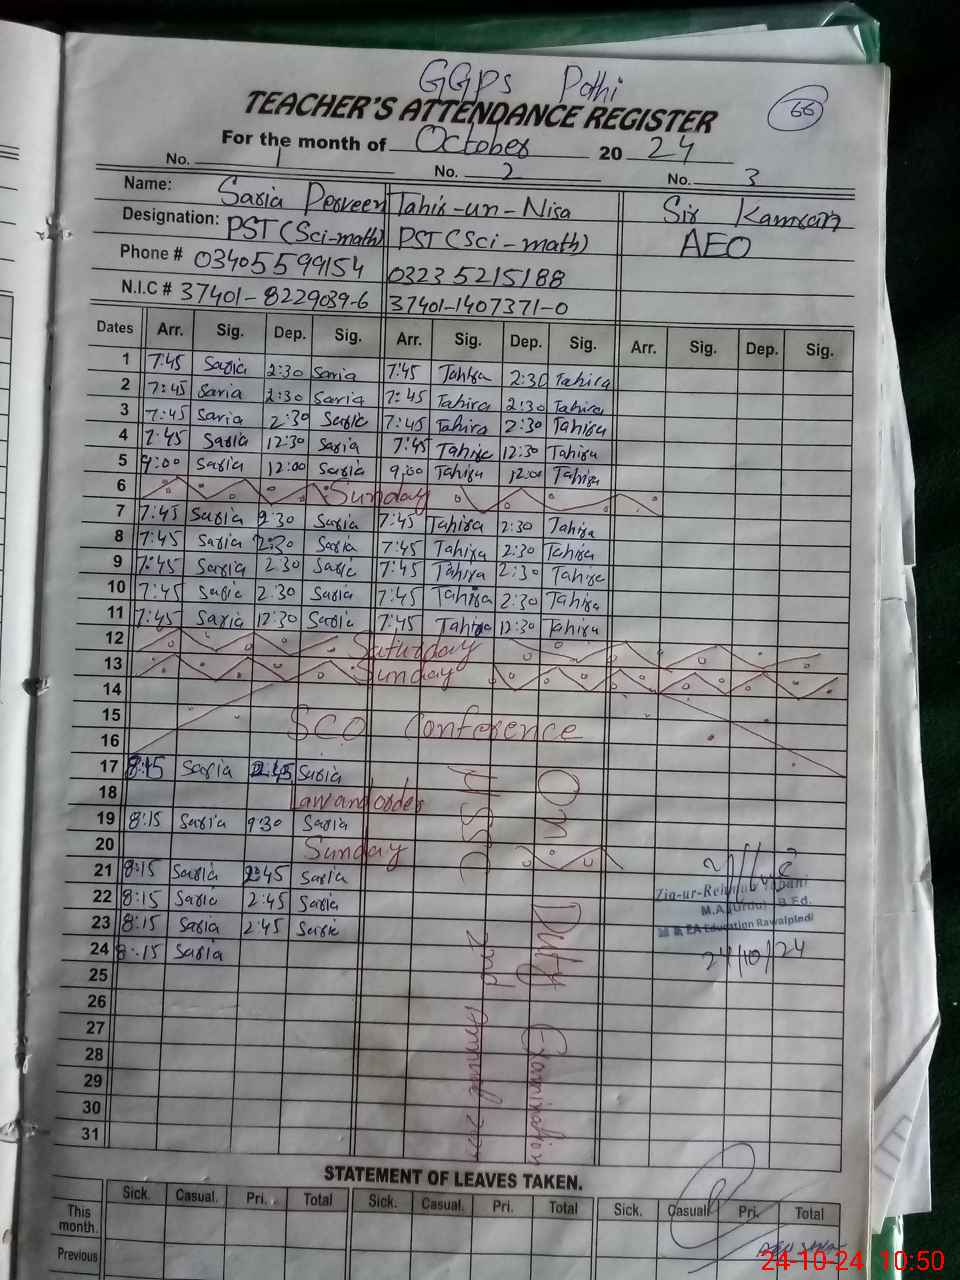 GGPS Pothi
TEACHER'S ATTENDANCE REGISTER
66
For the month of October 20 24
No. 1 No. 2 No. 3
Name: Saria Perveen Tahir-un-Nisa Sir Kamran
Designation: PST (Sci-math) PST (Sci-math) AEO
Phone # 03405599154 0323 5215188
N.I.C # 37401-8229039-6 37401-1407371-0
Dates Arr. Sig. Dep. Sig. Arr. Sig. Dep. Sig. Arr. Sig. Dep. Sig.
1 7:45 Saria 2:30 Saria 7:45 Tahira 2:30 Tahira
2 7:45 Saria 2:30 Saria 7:45 Tahira 2:30 Tahira
3 7:45 Saria 2:30 Saria 7:45 Tahira 2:30 Tahira
4 7:45 Saria 12:30 Saria 7:45 Tahira 12:30 Tahira
5 9:00 Saria 12:00 Saria 9:00 Tahira 12:00 Tahira
6 Sunday
7 7:45 Saria 2:30 Saria 7:45 Tahira 2:30 Tahira
8 7:45 Saria 2:30 Saria 7:45 Tahira 2:30 Tahira
9 7:45 Saria 2:30 Saria 7:45 Tahira 2:30 Tahira
10 7:45 Saria 2:30 Saria 7:45 Tahira 2:30 Tahira
11 7:45 Saria 12:30 Saria 7:45 Tahira 12:30 Tahira
12 Saturday
13 Sunday
14
15 SCO Conference
16
17 8:15 Saria 2:45 Saria
18 Law and order
19 8:15 Saria 9:30 Saria
20 Sunday
21 8:15 Saria 2:45 Saria
22 8:15 Saria 2:45 Saria
23 8:15 Saria 2:45 Saria
24 8:15 Saria
25
26
27
28
29
30
31
On Duty Examination
HSSC 2nd Annual
Zia-ur-Rehman
M.A (Urdu), B.Ed.
Education Rawalpindi
24/10/24
STATEMENT OF LEAVES TAKEN.
Sick. Casual. Pri. Total Sick. Casual. Pri. Total Sick. Casual Pri. Total
This month.
Previous
24-10-24 10:50